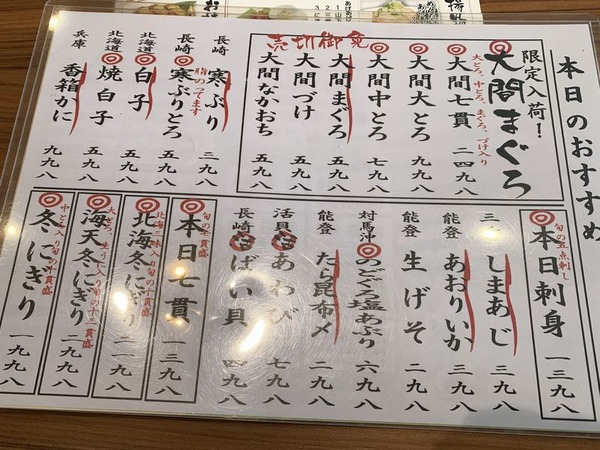 本日のおすすめ
限定入荷！
大間まぐろ
大とろ、中とろ、まぐろ、づけ入り
大間七貫 二四九八
大間大とろ 九九八
大間中とろ 七九八
売切御免
大間まぐろ 五九八
大間づけ 五九八
大間なかおち 五九八
長崎 寒ぶり 三九八
長崎 寒ぶりとろ 五九八
脂のってます
北海道 白子 五九八
北海道 焼白子 五九八
兵庫 香箱かに 九九八
旬の五点刺し
本日刺身 一三九八
しまあじ 三九八
能登 あおりいか 三九八
能登 生げそ 二九八
対馬沖 のどぐろ塩あぶり 六九八
能登 たら昆布〆 二九八
活貝 あわび 七九八
長崎 ばい貝 四九八
旬の七貫盛
本日七貫 一三九八
北海冬にぎり 二一九八
海天冬にぎり 二九九八
冬にぎり 一九九八